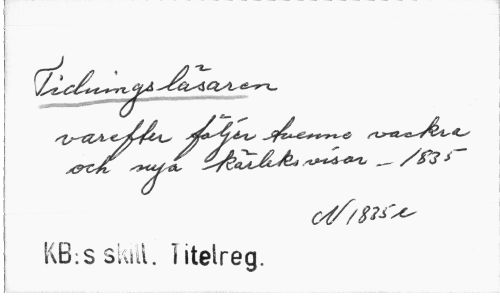 Tidningsläsaren
varefter följer tvenne vackra
och nya kärleksvisor - 1835
N 1835 e
KB:s skill. Titelreg.